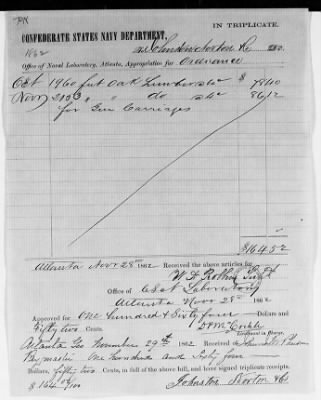 IN TRIPLICATE.
CONFEDERATE STATES NAVY DEPARTMENT,
1862
Office of Naval Laboratory, Atlanta, Appropriation for Ordnance
Oct 1960 feet Oak Lumber 4c $ 78 40
Novr 2153 " " do 4c 86 12
for Gun Carriages
$164.52
Atlanta Novr 28th 1862. Received the above articles for
Office of C S N Laboratory
Atlanta Novr 28th 1862
Approved for One hundred & Sixty four Dollars and
Fifty two Cents.
D P McCorkle
Lieutenant in Charge.
Atlanta Geo November 29th 1862, Received of
Paymaster One hundred and Sixty four
Dollars, fifty two Cents, in full of the above bill, and have signed triplicate receipts.
$ 164 52/100
Johnston Norton & Co